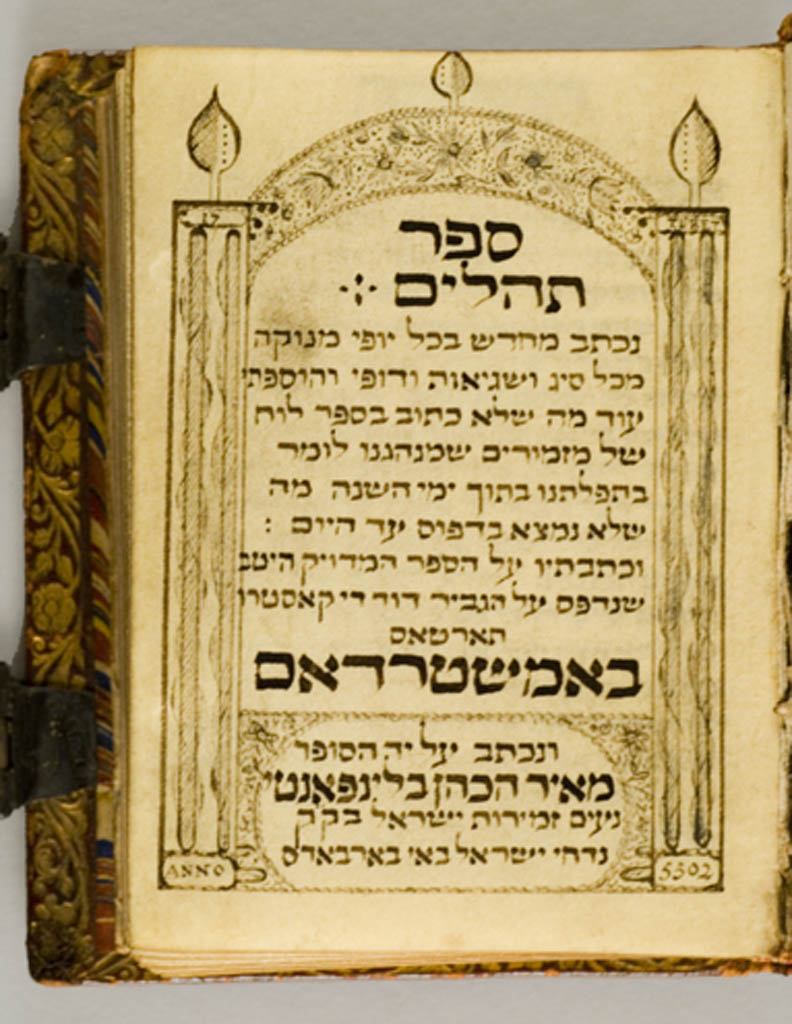 ספר
תהלים
נכתב מחדש בכל יופי מנוקה
מכל סיג ושגיאות ודופי והוספתי
עוד מה שלא כתוב בספר לוח
של מזמורים שמנהגנו לומר
בתפלתנו בתוך ימי השנה מה
שלא נמצא בדפוס עד היום :
וכתבתיו על הספר המדויק היטב
שנדפס על הגביר דוד די קאסטרו
תארטאס
באמשטרדאם
ונכתב על יד הסופר
מאיר הכהן בלינפאנטי
נעים זמירות ישראל בקק
נדחי ישראל באי בארבאדס
ANNO
5502